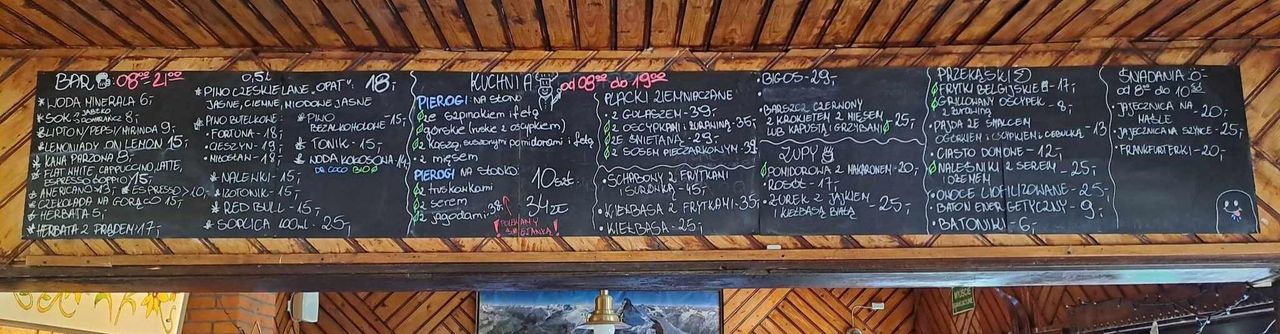 BAR 08⁰⁰-21⁰⁰
* WODA MINERALA 6,-
* SOK JABŁKO POMARAŃCZ 8,-
* LIPTON/PEPSI/MIRINDA 9,-
* LEMONIADY ON LEMON 15,-
* KAWA PARZONA 8,-
* FLAT WHITE, CAPPUCCINO, LATTE,
ESPRESSO DOPPIO 15,-
* AMERICANO 13,- * ESPRESSO 10,-
* CZEKOLADA NA GORĄCO 15,-
* HERBATA 5,-
* HERBATA Z PRĄDEM 17,-
0,5L
* PIWO CZESKIE LANE "OPAT" 18,-
JASNE, CIEMNE, MIODOWE JASNE
* PIWO BUTELKOWE:
- FORTUNA - 18,-
- CIESZYN - 19,-
- MIŁOSŁAW - 18,-
* NALEWKI - 15,-
* IZOTONIK - 15,-
* RED BULL - 15,-
* SOPLICA 100ML - 25,-
* PIWO
BEZALKOHOLOWE - 15,-
* TONIK - 15,-
* WODA KOKOSOWA 14,-
DR. COCO BIO
KUCHNIA od 08⁰⁰ do 19⁰⁰
PIEROGI: NA SŁONO
ze szpinakiem i fetą
góralskie (ruskie z oscypkiem)
z kaszą, suszonymi pomidorami i fetą
- z mięsem
PIEROGI NA SŁODKO:
z truskawkami
z serem
z jagodami
10szt.
34zł
38,-
! POLEWAMY
ŚMIETANKĄ !
PLACKI ZIEMNIACZANE
• Z GULASZEM - 39,-
• Z OSCYPKAMI I ŻURAWINĄ - 35,-
• ZE ŚMIETANĄ - 29,-
• Z SOSEM PIECZARKOWYM - 39,-
• SCHABOWY Z FRYTKAMI
I SURÓWKĄ - 45,-
• KIEŁBASA Z FRYTKAMI - 35,-
• KIEŁBASA - 25,-
• BIGOS - 29,-
• BARSZCZ CZERWONY
Z KROKIETEM Z MIĘSEM
LUB KAPUSTĄ I GRZYBAMI - 25,-
ZUPY
POMIDOROWA Z MAKARONEM - 20,-
• ROSÓŁ - 17,-
• ŻUREK Z JAJKIEM
I KIEŁBASĄ BIAŁĄ - 25,-
PRZEKĄSKI
FRYTKI BELGIJSKIE - 17,-
GRILLOWANY OSCYPEK - 8,-
Z ŻURAWINĄ
• PAJDA ZE SMALCEM
OGÓRKIEM I OSCYPKIEM I CEBULKĄ - 13
• CIASTO DOMOWE - 12,-
NALEŚNIKI Z SEREM - 25,-
I DŻEMEM
• OWOCE LIOFILIZOWANE - 25,-
• BATON ENERGETYCZNY - 9,-
• BATONIKI - 6,-
ŚNIADANIA
od 8⁰⁰ do 10³⁰
• JAJECZNICA NA
MAŚLE - 20,-
• JAJECZNICA NA SZYNCE - 25,-
• FRANKFURTERKI - 20,-
WYJŚCIE
EWAKUACYJNE